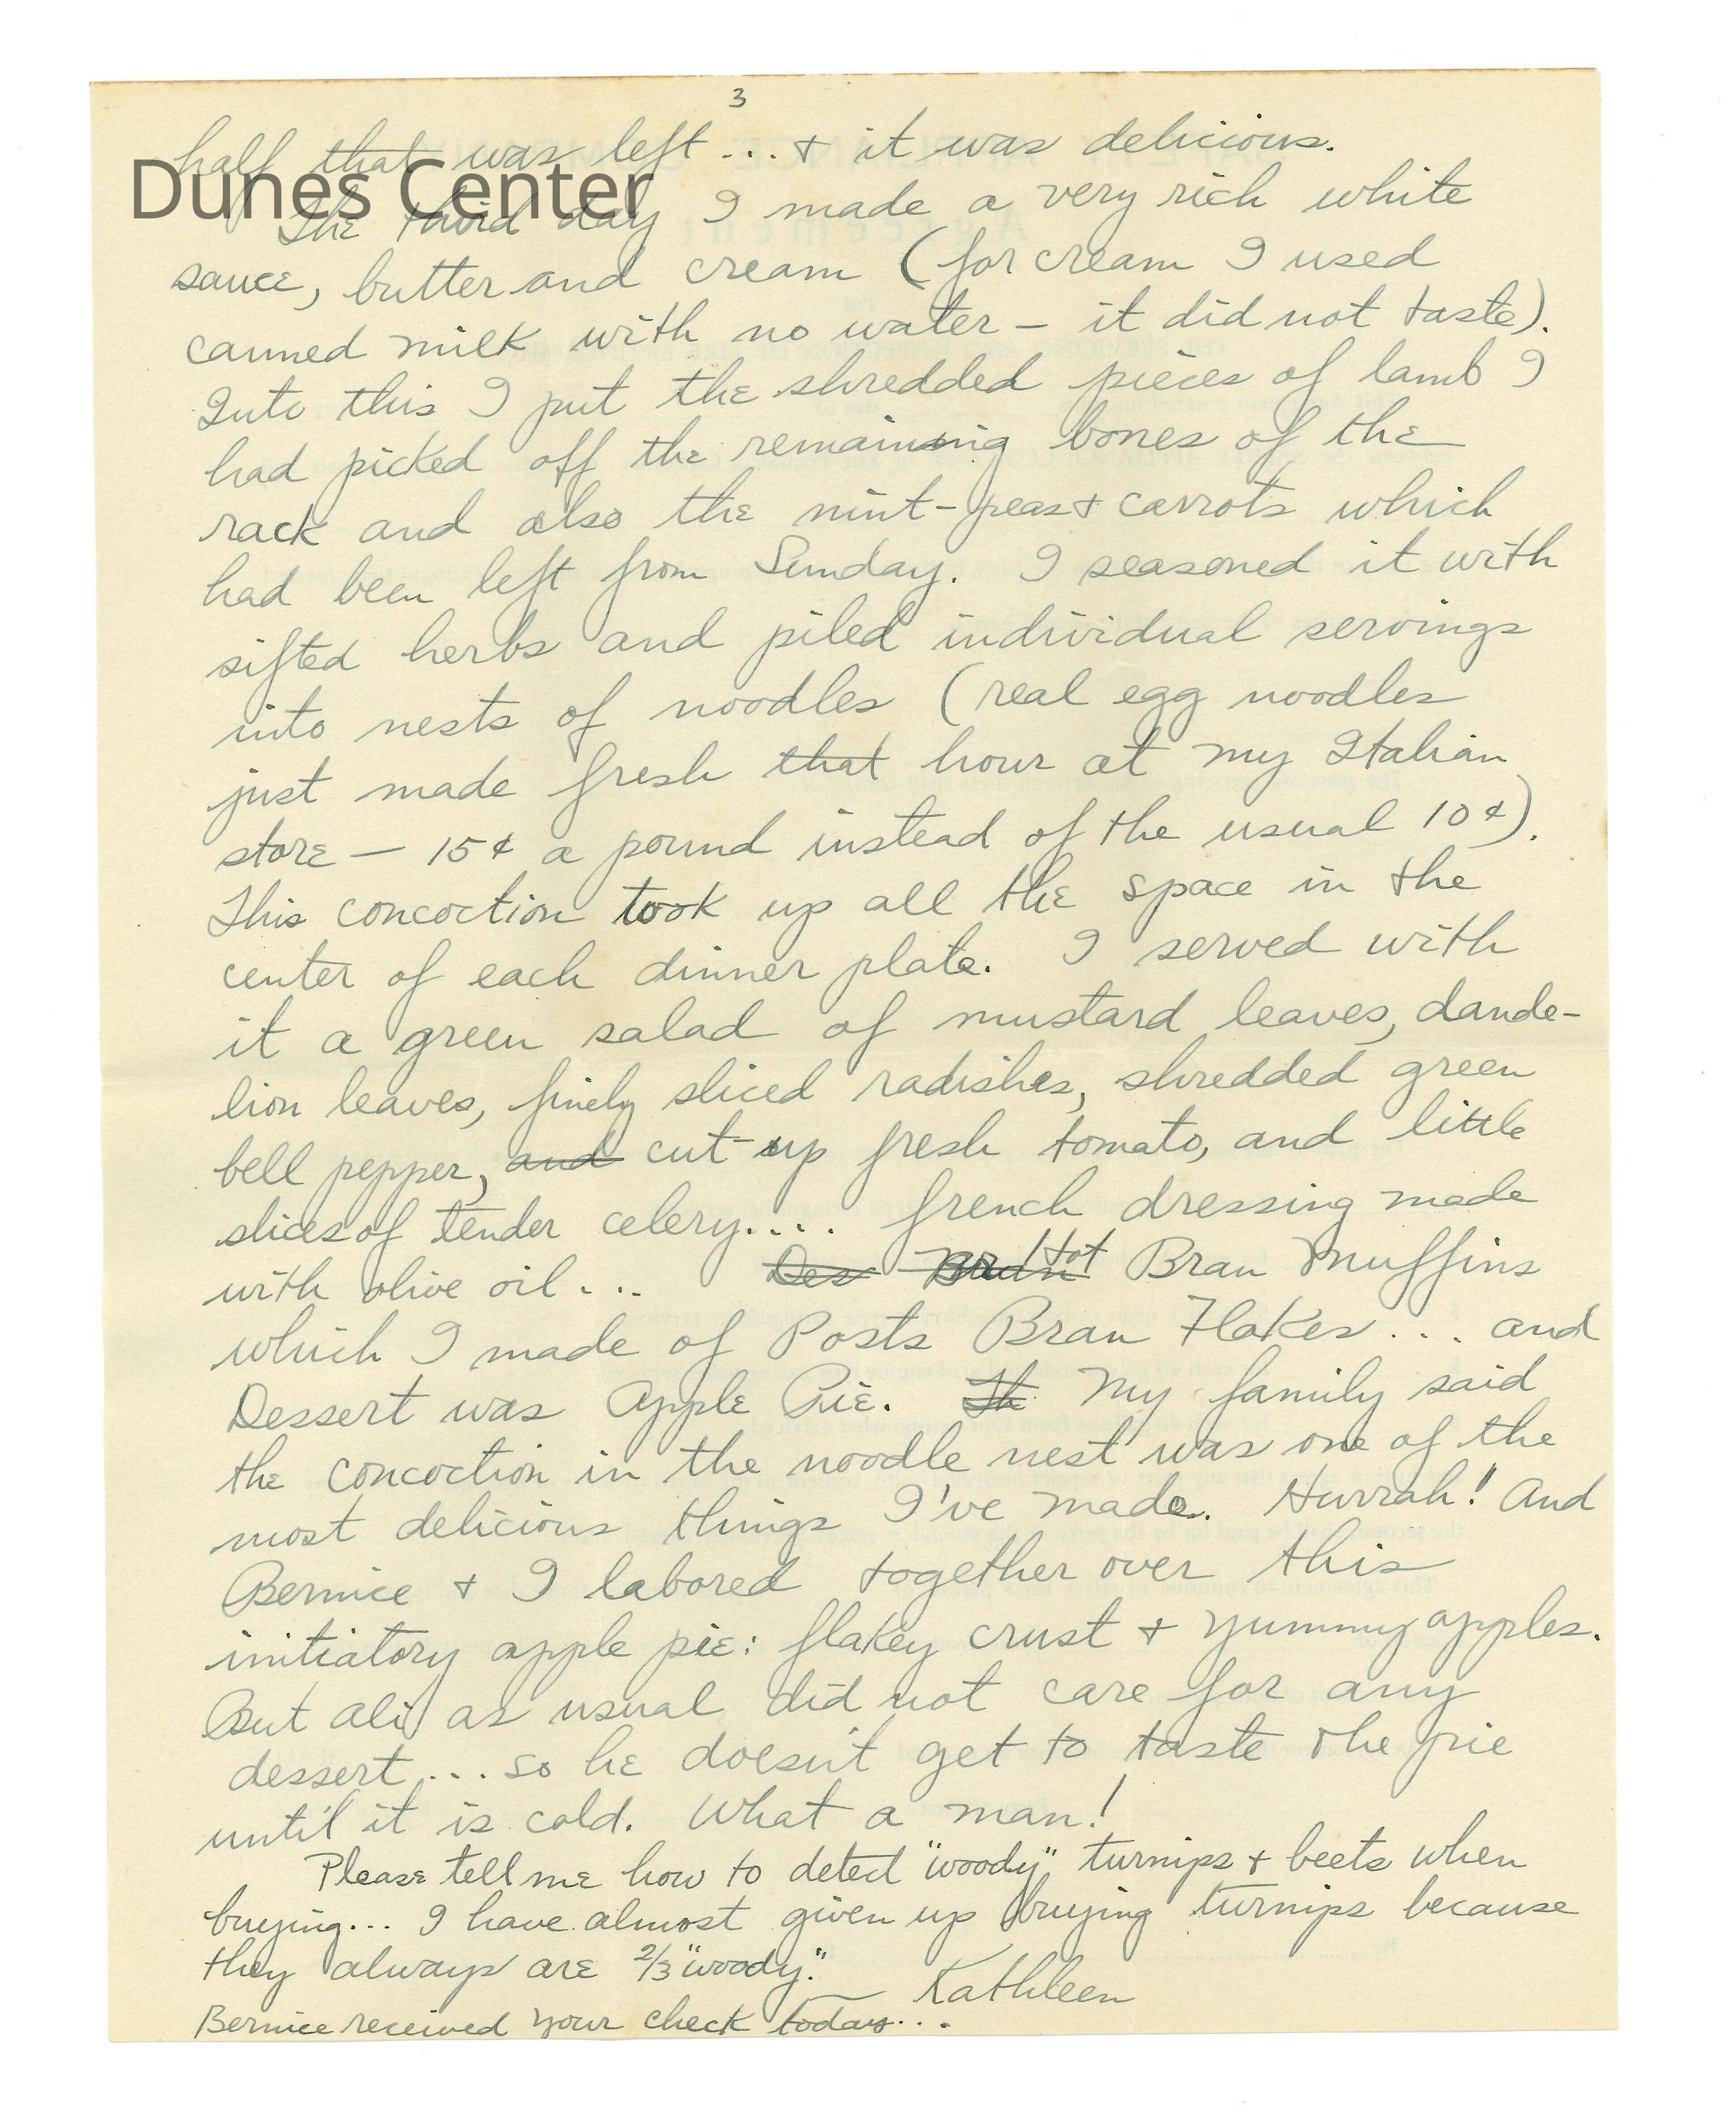 3
half that was left ... & it was delicious.
Dunes Center
The third day I made a very rich white
sauce, butter and cream (for cream I used
canned milk with no water — it did not taste).
Into this I put the shredded pieces of lamb I
had picked off the remaining bones of the
rack and also the mint-peas & carrots which
had been left from Sunday. I seasoned it with
sifted herbs and piled individual servings
into nests of noodles (real egg noodles
just made fresh that hour at my Italian
store — 15¢ a pound instead of the usual 10¢).
This concoction took up all the space in the
center of each dinner plate. I served with
it a green salad of mustard leaves, dande-
lion leaves, finely sliced radishes, shredded green
bell pepper, and cut-up fresh tomato, and little
slices of tender celery.... french dressing made
with olive oil... Des Bran Hot Bran Muffins
which I made of Posts Bran Flakes... and
Dessert was Apple Pie. Th My family said
the concoction in the noodle nest was one of the
most delicious things I've made. Hurrah! And
Bernice & I labored together over this
initiatory apple pie: flakey crust & yummy apples.
But Ali as usual did not care for any
dessert... so he doesn't get to taste the pie
until it is cold. What a man!
Please tell me how to detect "woody" turnips & beets when
buying... I have almost given up buying turnips because
they always are 2/3 "woody."
— Kathleen
Bernice received your check today...